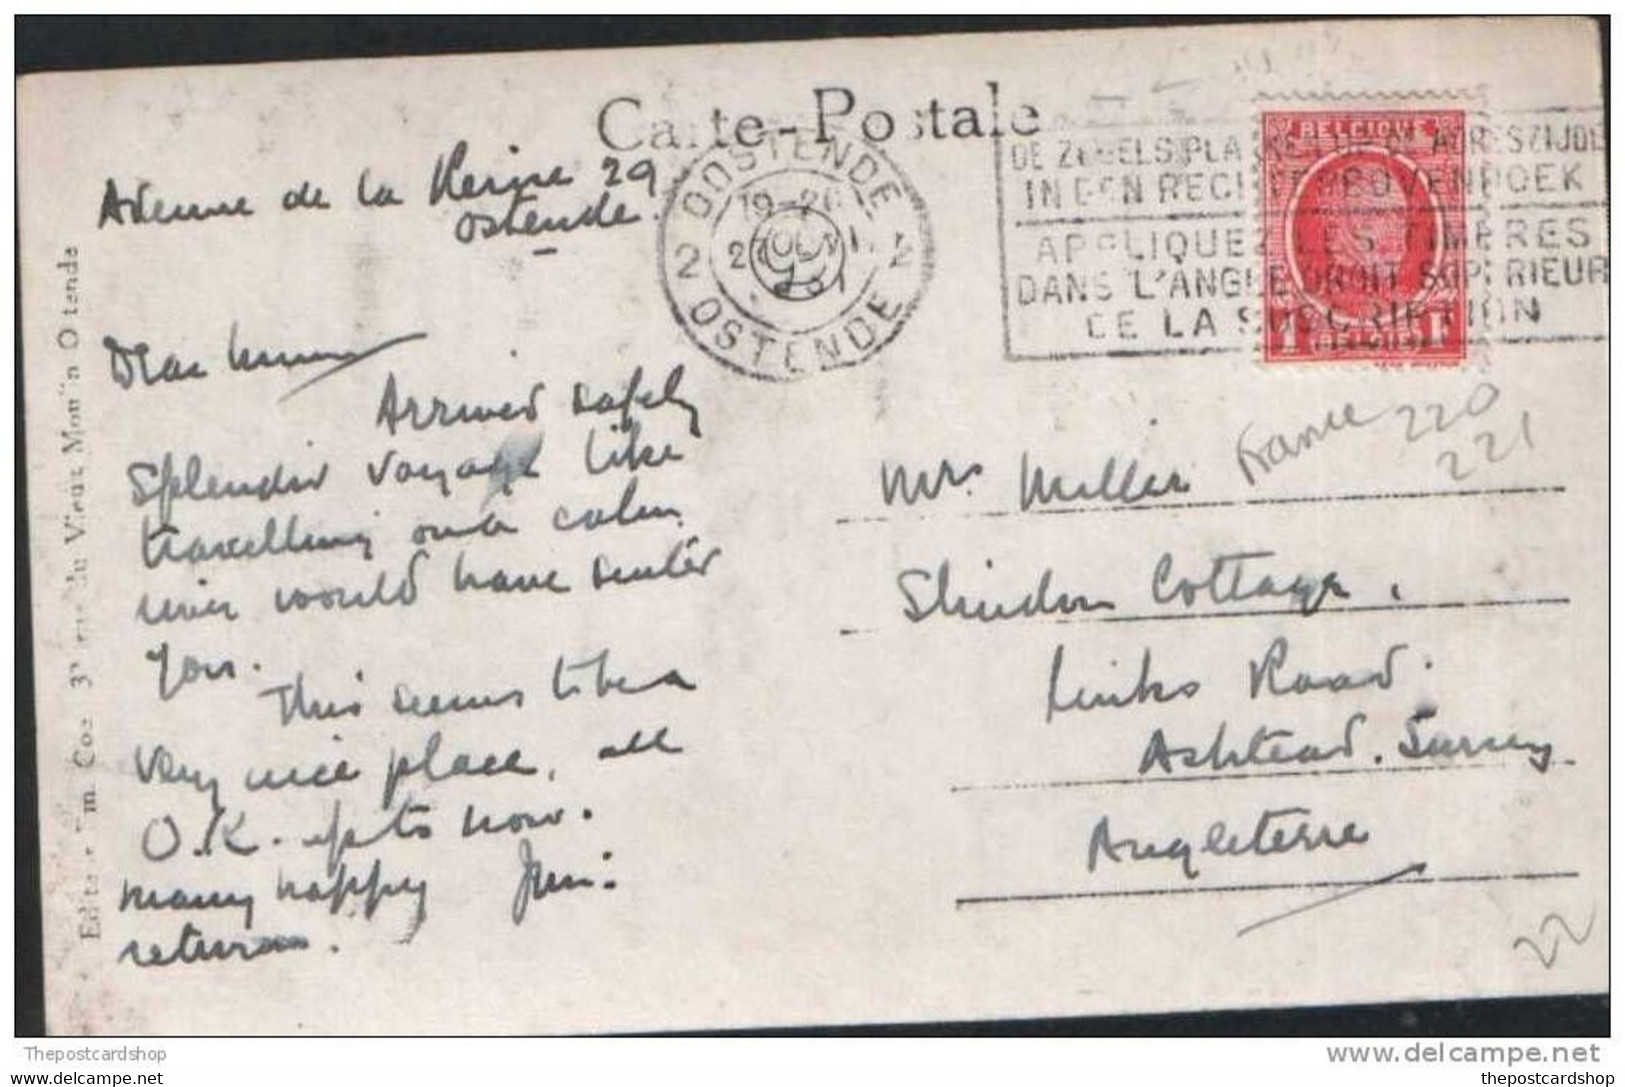 Carte-Postale
Avenue de la Reine 29
Ostende.
OOSTENDE
19-20
2 2
OSTENDE
DE ZEGELS PLAKKEN OP DE ADRESZIJDE
IN DEN RECHTERBOVENHOEK
APPLIQUEZ LES TIMBRES
DANS L'ANGLE DROIT SUPERIEUR
DE LA SUSCRIPTION
BELGIQUE
1F 1F
Dear Mum
Arrived safely
Splendid voyage like
travelling on a calm
river would have suited
you.
This seems to be a
very nice place, all
O.K. up to now.
many happy Jim.
returns.
Mrs Miller
Cottage.
Links Road.
Ashtead. Surrey
Angleterre
France 220
221
22
du Vieux Moulin Ostende
Thepostcardshop
www.delcampe.net
thepostcardshop